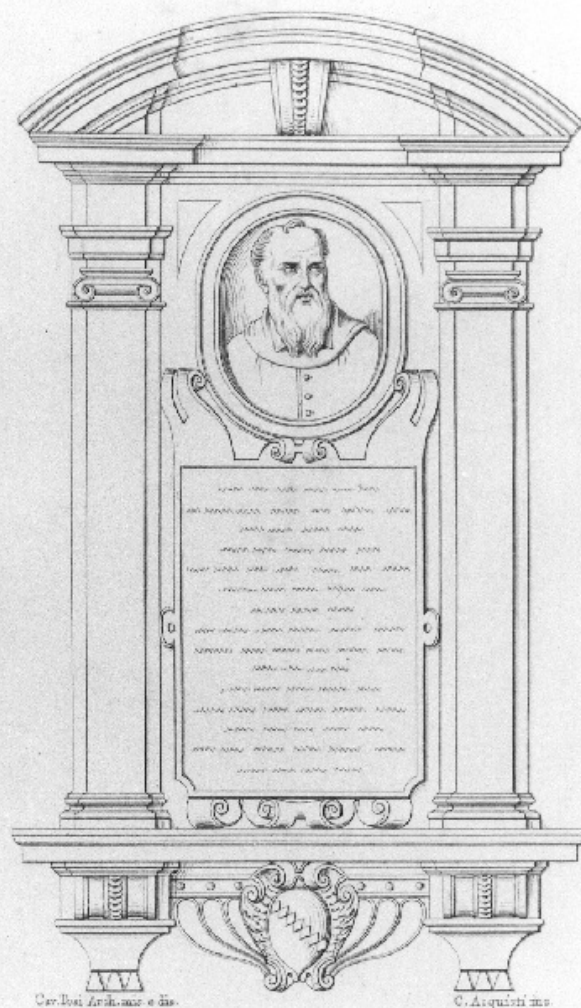 Cav. Tosi Arch. mis. e dis.
C. Acquisti inc.